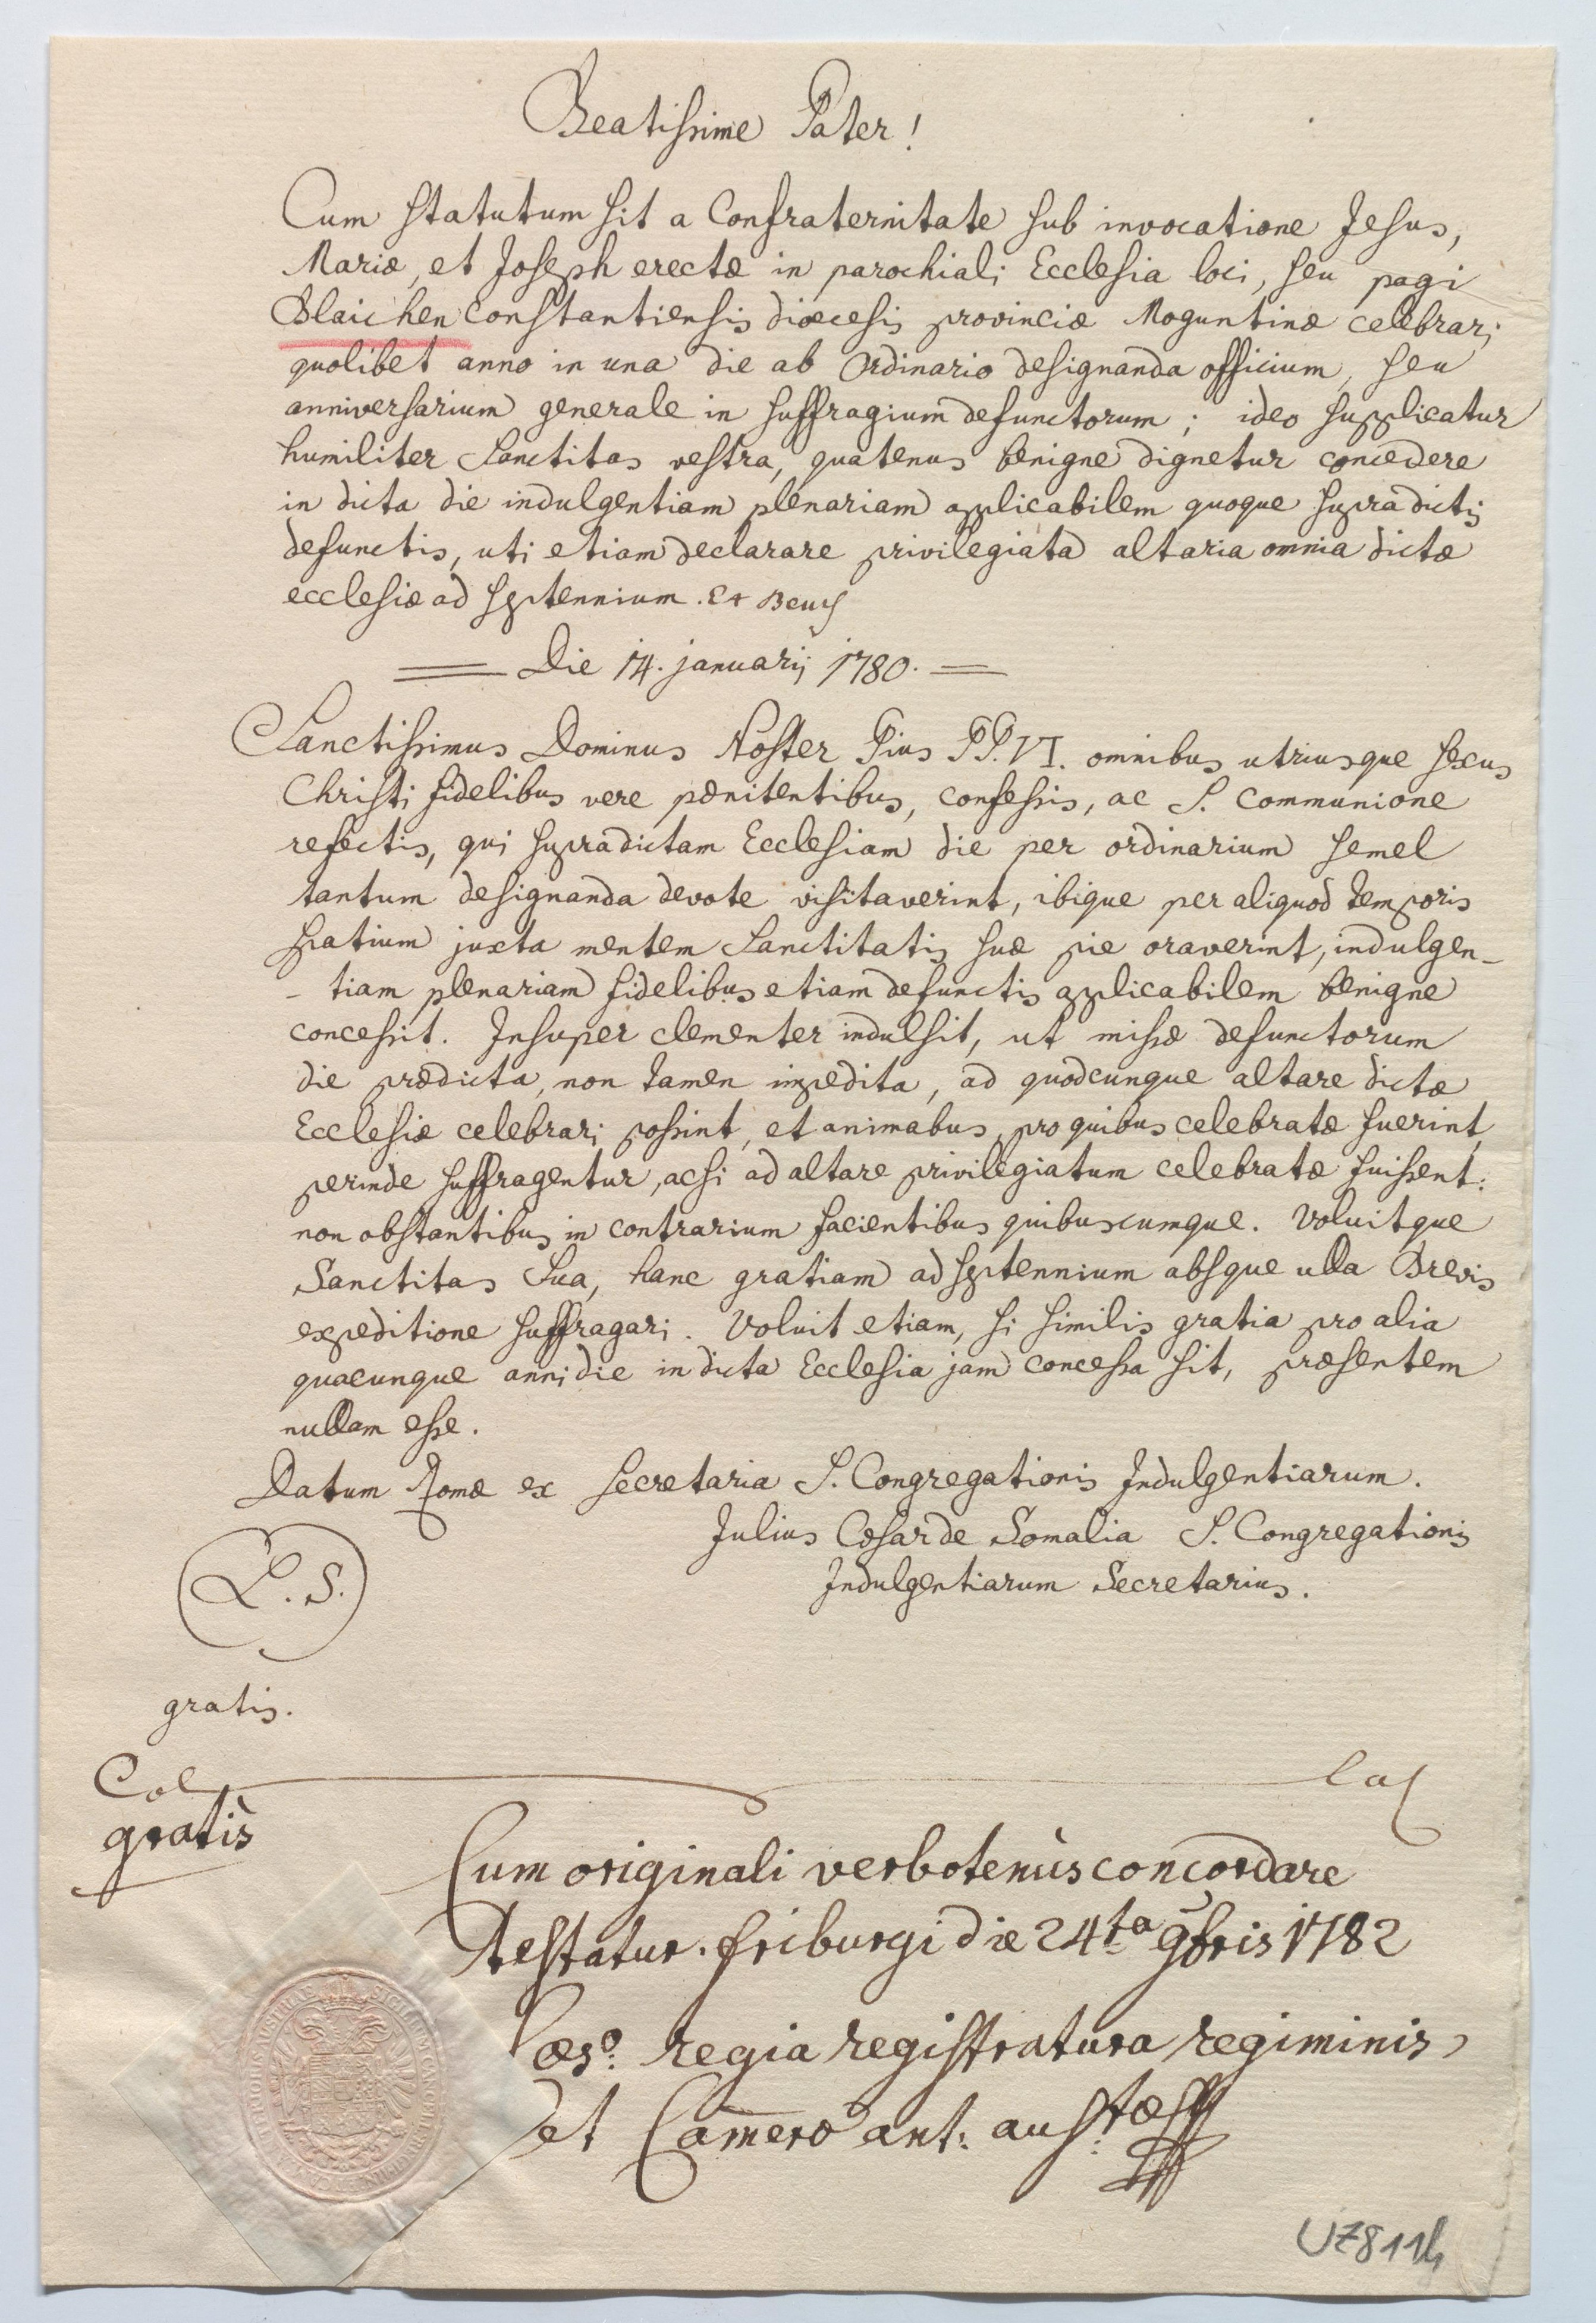 Beatissime Pater!
Cum statutum sit a Confraternitate sub invocatione Jesus,
Mariæ, et Joseph erectæ in parochiali Ecclesia loci, seu pagi
Blaichen Constantiensis diœcesis provinciæ Moguntinæ celebrari
quolibet anno in una die ab Ordinario designanda officium, seu
anniversarium generale in suffragium defunctorum; ideo supplicatur
humiliter Sanctitas vestra, quatenus benigne dignetur concedere
in dicta die indulgentiam plenariam applicabilem quoque supradictis
defunctis, uti etiam declarare privilegiata altaria omnia dictæ
ecclesiæ ad septennium. Et
Die 14. januarij 1780.
Sanctissimus Dominus Noster Pius PP. VI. omnibus utriusque sexus
Christi fidelibus vere pœnitentibus, confessis, ac S. Communione
refectis, qui supradictam Ecclesiam die per ordinarium semel
tantum designanda devote visitaverint, ibique per aliquod temporis
spatium juxta mentem Sanctitatis suæ pie oraverint, indulgen-
- tiam plenariam fidelibus etiam defunctis applicabilem benigne
concessit. Insuper clementer indulsit, ut missæ defunctorum
die prædicta, non tamen impedita, ad quodcunque altare dictæ
Ecclesiæ celebrari possint, et animabus, pro quibus celebratæ fuerint,
perinde suffragentur, acsi ad altare privilegiatum celebratæ fuissent:
non obstantibus in contrarium facientibus quibuscumque. Voluitque
Sanctitas Sua, hanc gratiam ad septennium absque ulla Brevis
expeditione suffragari. Voluit etiam, si similis gratia pro alia
quacunque anni die in dicta Ecclesia jam concessa sit, præsentem
nullam esse.
Datum Romæ ex Secretaria S. Congregationis Indulgentiarum.
Julius Cæsar de Somalia S. Congregationis
Indulgentiarum Secretarius.
L. S.
gratis.
Col
gratis
Cum originali verbotenùs concordare
testatur. friburgi die 24ta 9bris 1782
Cæso: regia registratura regiminis
et Cameræ ant: austæ
UZ811h